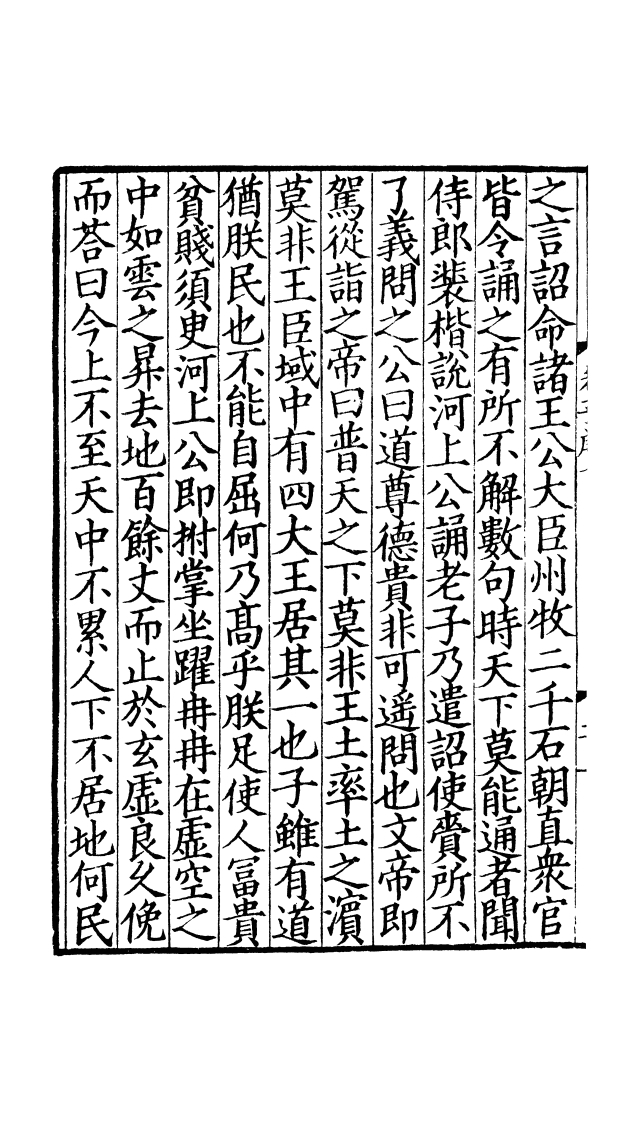 之言詔命諸王公大臣州牧二千石朝直衆官
皆令誦之有所不解數句時天下莫能通者聞
侍郎裴楷說河上公誦老子乃遣詔使賫所不
了義問之公曰道尊德貴非可遥問也文帝即
駕從詣之帝曰普天之下莫非王土率土之濵
莫非王臣域中有四大王居其一也子雖有道
猶朕民也不能自屈何乃髙乎朕足使人冨貴
貧賤須臾河上公即拊掌坐躍冉冉在虚空之
中如雲之昇去地百餘丈而止於玄虚良乆俛
而荅曰今上不至天中不累人下不居地何民